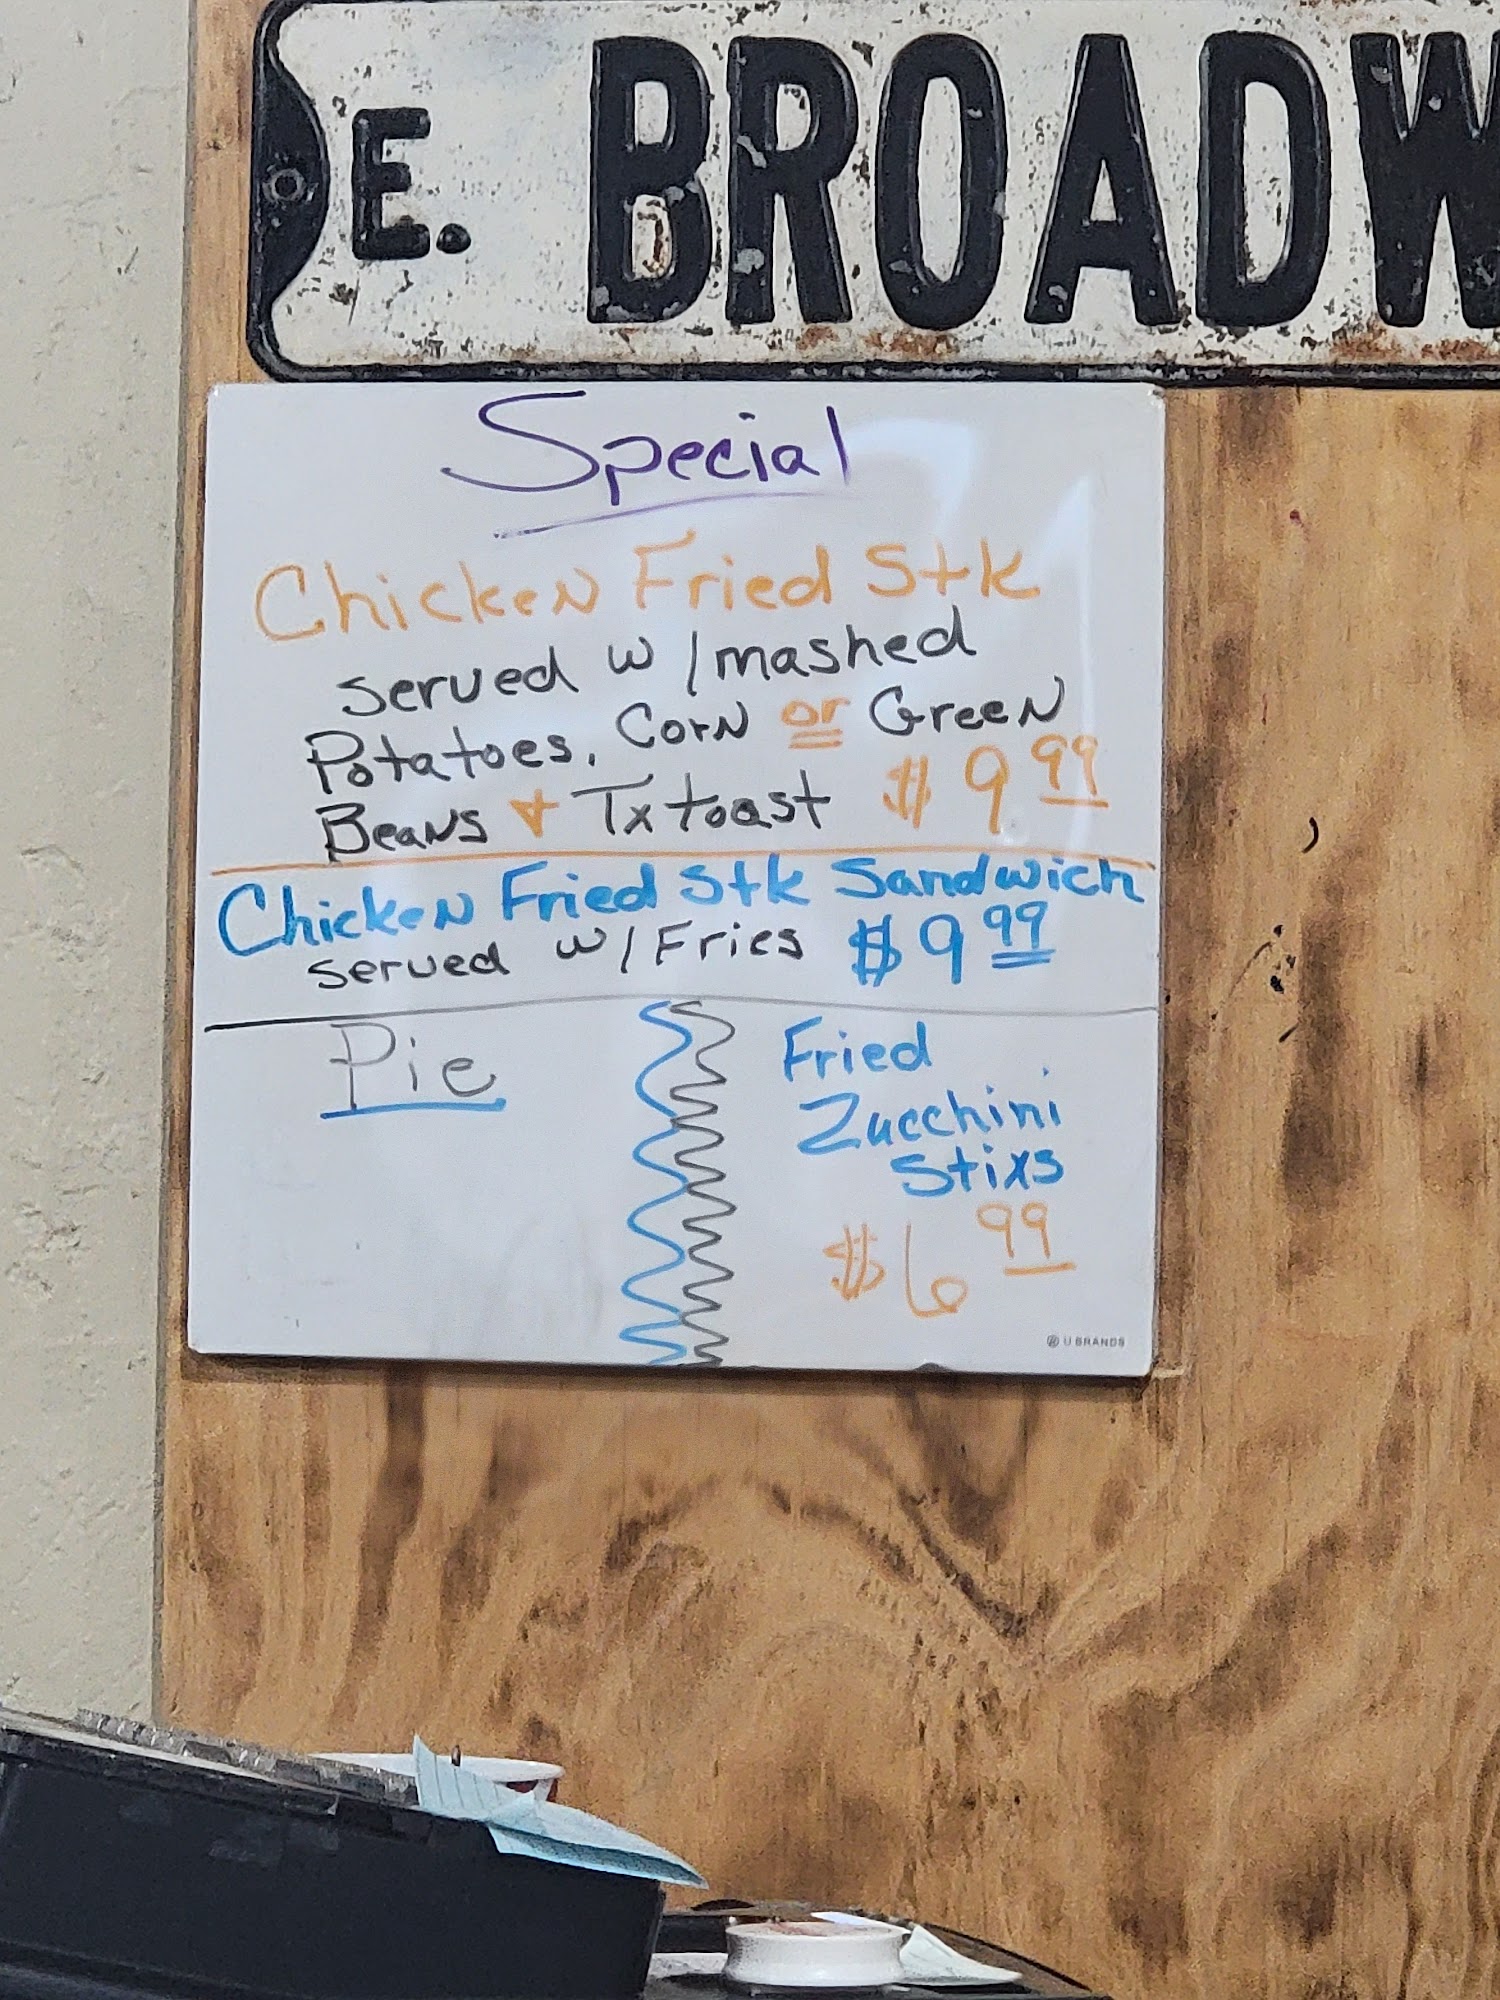 E. BROADW
Special
Chicken Fried Stk
served w/mashed
Potatoes, Corn or Green
Beans + Tx toast $9 99
Chicken Fried Stk Sandwich
served w/Fries $9 99
Pie
Fried
Zucchini
Stixs
$6 99
U BRANDS